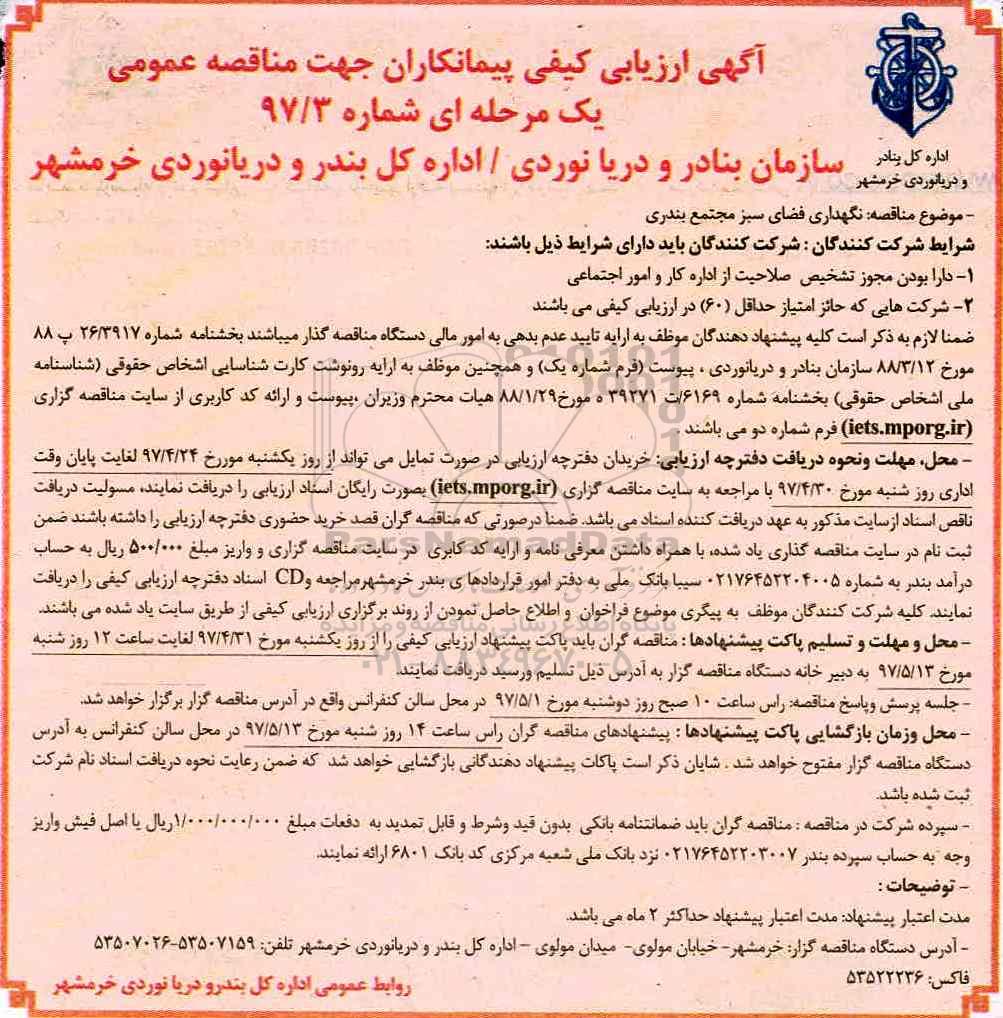 آگهی ارزیابی کیفی پیمانکاران جهت مناقصه عمومی
یک مرحله ای شماره ۹۷/۳
سازمان بنادر و دریا نوردی / اداره کل بندر و دریانوردی خرمشهر
اداره کل بنادر
و دریانوردی خرمشهر
- موضوع مناقصه: نگهداری فضای سبز مجتمع بندری
شرایط شرکت کنندگان : شرکت کنندگان باید دارای شرایط ذیل باشند:
۱- دارا بودن مجوز تشخیص صلاحیت از اداره کار و امور اجتماعی
۲- شرکت هایی که حائز امتیاز حداقل (۶۰) در ارزیابی کیفی می باشند
ضمنا لازم به ذکر است کلیه پیشنهاد دهندگان موظف به ارایه تایید عدم بدهی به امور مالی دستگاه مناقصه گذار میباشند بخشنامه شماره ۲۶/۳۹۱۷ پ ۸۸
مورخ ۸۸/۳/۱۲ سازمان بنادر و دریانوردی ، پیوست (فرم شماره یک) و همچنین موظف به ارایه رونوشت کارت شناسایی اشخاص حقوقی (شناسنامه
ملی اشخاص حقوقی) بخشنامه شماره ۶۱۶۹/ت ۳۹۲۷۱ ه مورخ۸۸/۱/۲۹ هیات محترم وزیران ،پیوست و ارائه کد کاربری از سایت مناقصه گزاری
(iets.mporg.ir) فرم شماره دو می باشند .
- محل، مهلت ونحوه دریافت دفترچه ارزیابی: خریدان دفترچه ارزیابی در صورت تمایل می تواند از روز یکشنبه موررخ ۹۷/۴/۲۴ لغایت پایان وقت
اداری روز شنبه مورخ ۹۷/۴/۳۰ با مراجعه به سایت مناقصه گزاری (iets.mporg.ir) بصورت رایگان اسناد ارزیابی را دریافت نمایند، مسولیت دریافت
ناقص اسناد ازسایت مذکور به عهد دریافت کننده اسناد می باشد. ضمنا درصورتی که مناقصه گران قصد خرید حضوری دفترچه ارزیابی را داشته باشند ضمن
ثبت نام در سایت مناقصه گذاری یاد شده، با همراه داشتن معرفی نامه و ارایه کد کابری در سایت مناقصه گزاری و واریز مبلغ ۵۰۰/۰۰۰ ریال به حساب
درآمد بندر به شماره ۰۲۱۷۶۴۵۲۲۰۴۰۰۵ سیبا بانک ملی به دفتر امور قراردادها ی بندر خرمشهرمراجعه وCD اسناد دفترچه ارزیابی کیفی را دریافت
نمایند. کلیه شرکت کنندگان موظف به پیگری موضوع فراخوان و اطلاع حاصل نمودن از روند برگزاری ارزیابی کیفی از طریق سایت یاد شده می باشند.
- محل و مهلت و تسلیم پاکت پیشنهادها : مناقصه گران باید پاکت پیشنهاد ارزیابی کیفی را از روز یکشنبه مورخ ۹۷/۴/۳۱ لغایت ساعت ۱۲ روز شنبه
مورخ ۹۷/۵/۱۳ به دبیر خانه دستگاه مناقصه گزار به آدرس ذیل تسلیم ورسید دریافت نمایند.
- جلسه پرسش وپاسخ مناقصه: راس ساعت ۱۰ صبح روز دوشنبه مورخ ۹۷/۵/۱ در محل سالن کنفرانس واقع در آدرس مناقصه گزار برگزار خواهد شد.
- محل وزمان بازگشایی پاکت پیشنهادها : پیشنهادهای مناقصه گران راس ساعت ۱۴ روز شنبه مورخ ۹۷/۵/۱۳ در محل سالن کنفرانس به آدرس
دستگاه مناقصه گزار مفتوح خواهد شد . شایان ذکر است پاکات پیشنهاد دهندگانی بازگشایی خواهد شد که ضمن رعایت نحوه دریافت اسناد نام شرکت
ثبت شده باشد.
- سپرده شرکت در مناقصه : مناقصه گران باید ضمانتنامه بانکی بدون قید وشرط و قابل تمدید به دفعات مبلغ ۱/۰۰۰/۰۰۰/۰۰۰ریال یا اصل فیش واریز
وجه به حساب سپرده بندر ۰۲۱۷۶۴۵۲۲۰۳۰۰۷ نزد بانک ملی شعبه مرکزی کد بانک ۶۸۰۱ ارائه نمایند.
- توضیحات :
مدت اعتبار پیشنهاد: مدت اعتبار پیشنهاد حداکثر ۲ ماه می باشد.
- آدرس دستگاه مناقصه گزار: خرمشهر- خیابان مولوی- میدان مولوی - اداره کل بندر و دریانوردی خرمشهر تلفن: ۵۳۵۰۷۱۵۹-۵۳۵۰۷۰۲۶
فاکس: ۵۳۵۲۲۲۳۶
روابط عمومی اداره کل بندرو دریا نوردی خرمشهر
ParsNamadData
پایگاه اطلاع رسانی مناقصه و مزایده
۰۲۱-۸۸۳۴۹۶۷۰-۵